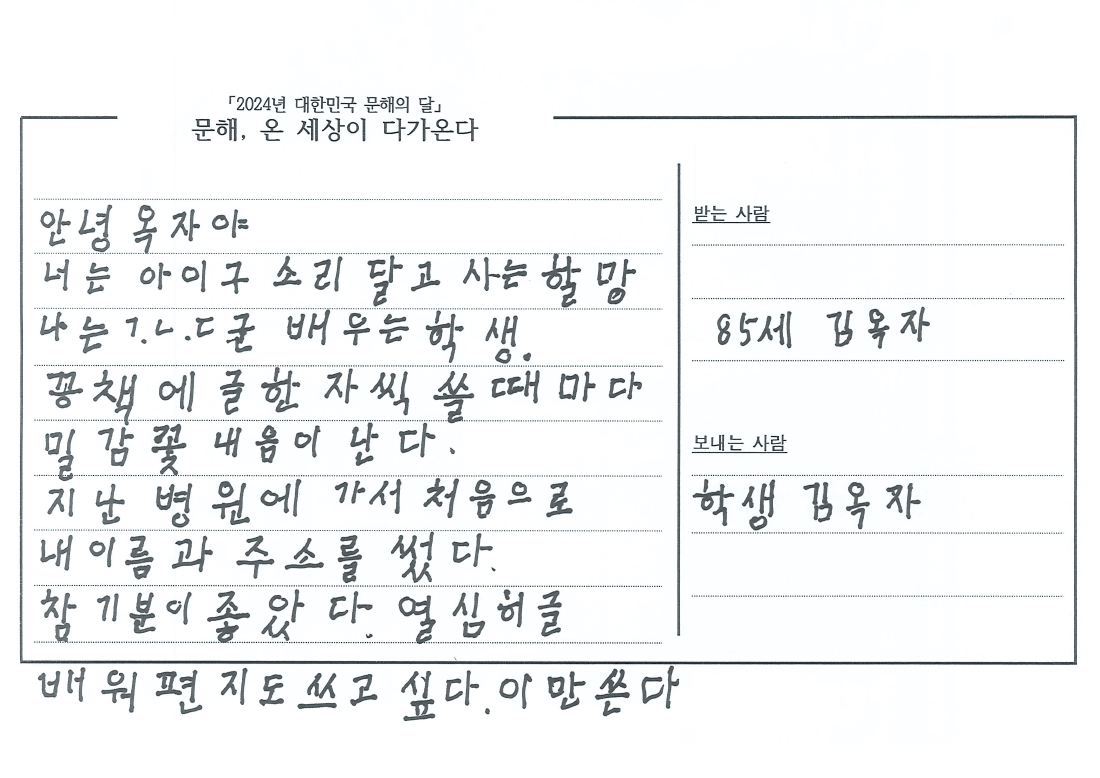 「2024년 대한민국 문해의 달」
문해, 온 세상이 다가온다
안녕 옥자야
너는 아이구 소리 달고 사는 할망
나는 ㄱ.ㄴ.ㄷ 굳 배우는 학생.
공책에 글한자씩 쓸때마다
밀감꽃 내음이 난다.
지난 병원에 가서 처음으로
내이름과 주소를 썼다.
참 기분이 좋았다. 열심히 글
배워 편지도 쓰고 싶다. 이만 쓴다
받는 사람
85세 김옥자
보내는 사람
학생 김옥자